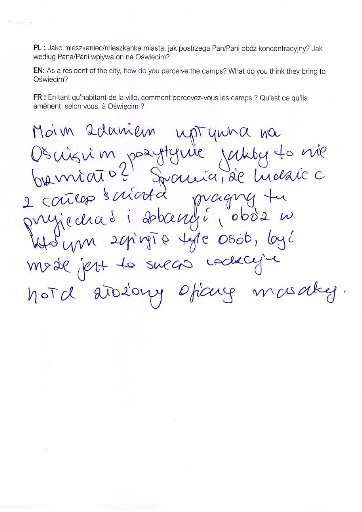 PL : Jako mieszkaniec/mieszkanka miasta, jak postrzega Pan/Pani obóz koncentracyjny? Jak
według Pana/Pani wpływa on na Oświęcim?
EN: As a resident of the city, how do you perceive the camps? What do you think they bring to
Oświęcim?
FR : En tant qu'habitant de la ville, comment percevez-vous les camps ? Qu'est ce qu'ils
amènent, selon vous, à Oświęcim ?
Moim zdaniem wpływa na
Oświęcim pozytywnie jakby to nie
brzmiało? Sprawia, że ludzie
z całego świata pragną tu
przyjechać i zobaczyć, obóz w
którym zginęło tyle osób, być
może jest to swego rodzaju
hołd złożony ofiarą masakry.